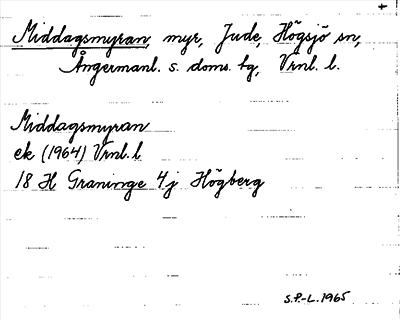 Middagsmyran, myr, Jude, Högsjö sn,
Ångermanl. s. doms. tg, Vrnl. l.
Middagsmyran
ek (1964) Vrnl. l
18 H Graninge 4j Högberg
S.P.-L. 1965